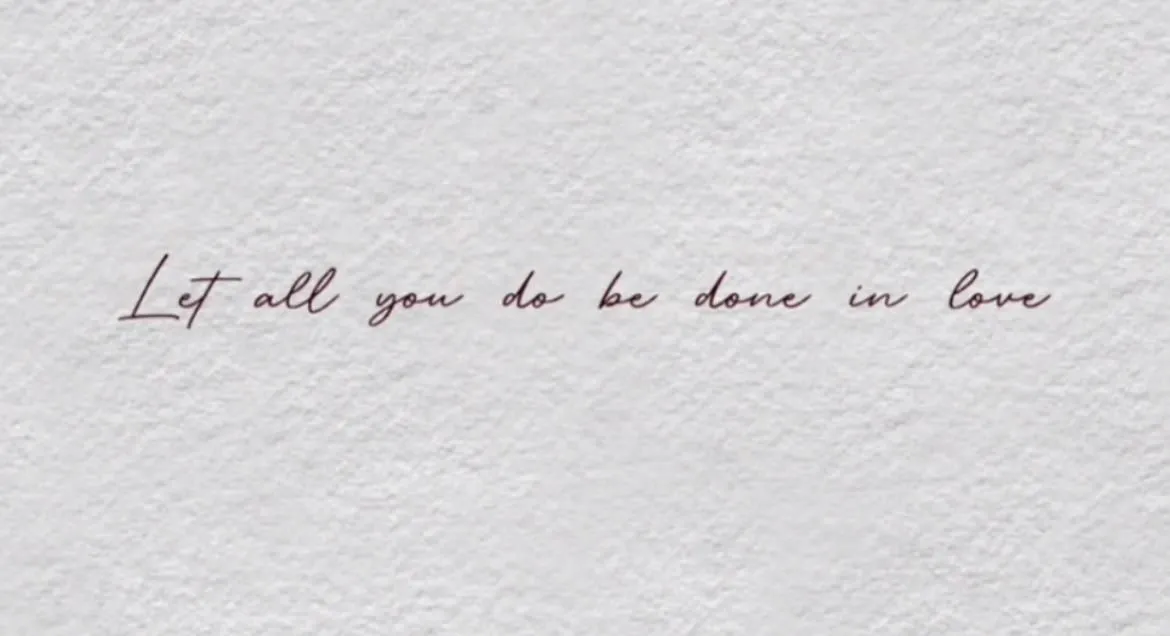 Let all you do be done in love